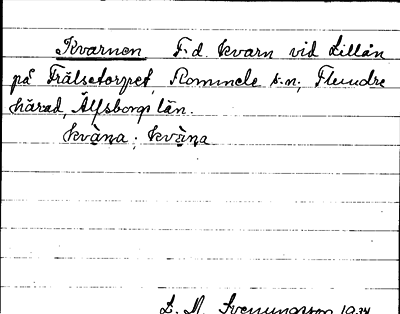 Kvarnen F. d. kvarn vid Lillån
på Trälsetorpet, Rommele s:n, Flundre
härad, Älfsborgs län.
kvàna; kvàna
L. M. Svenungsson 1934